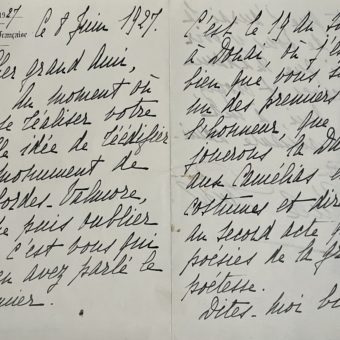 1927
Française
Ce 8 Juin 1927.
her grand Ami,
Au moment où
se réaliser votre
le idée de réédifier
monument de
bordes-Valmore,
e puis oublier
c'est vous qui
en avez parlé le
mier.
C'est le 19 du
à Douai, où j'
bien que vous
un des premiers
l'honneur, que
jouerons la Da
aux Camelias e
costumes et dir
au second acte
poèmes de la
poètesse.
Dites-moi bi